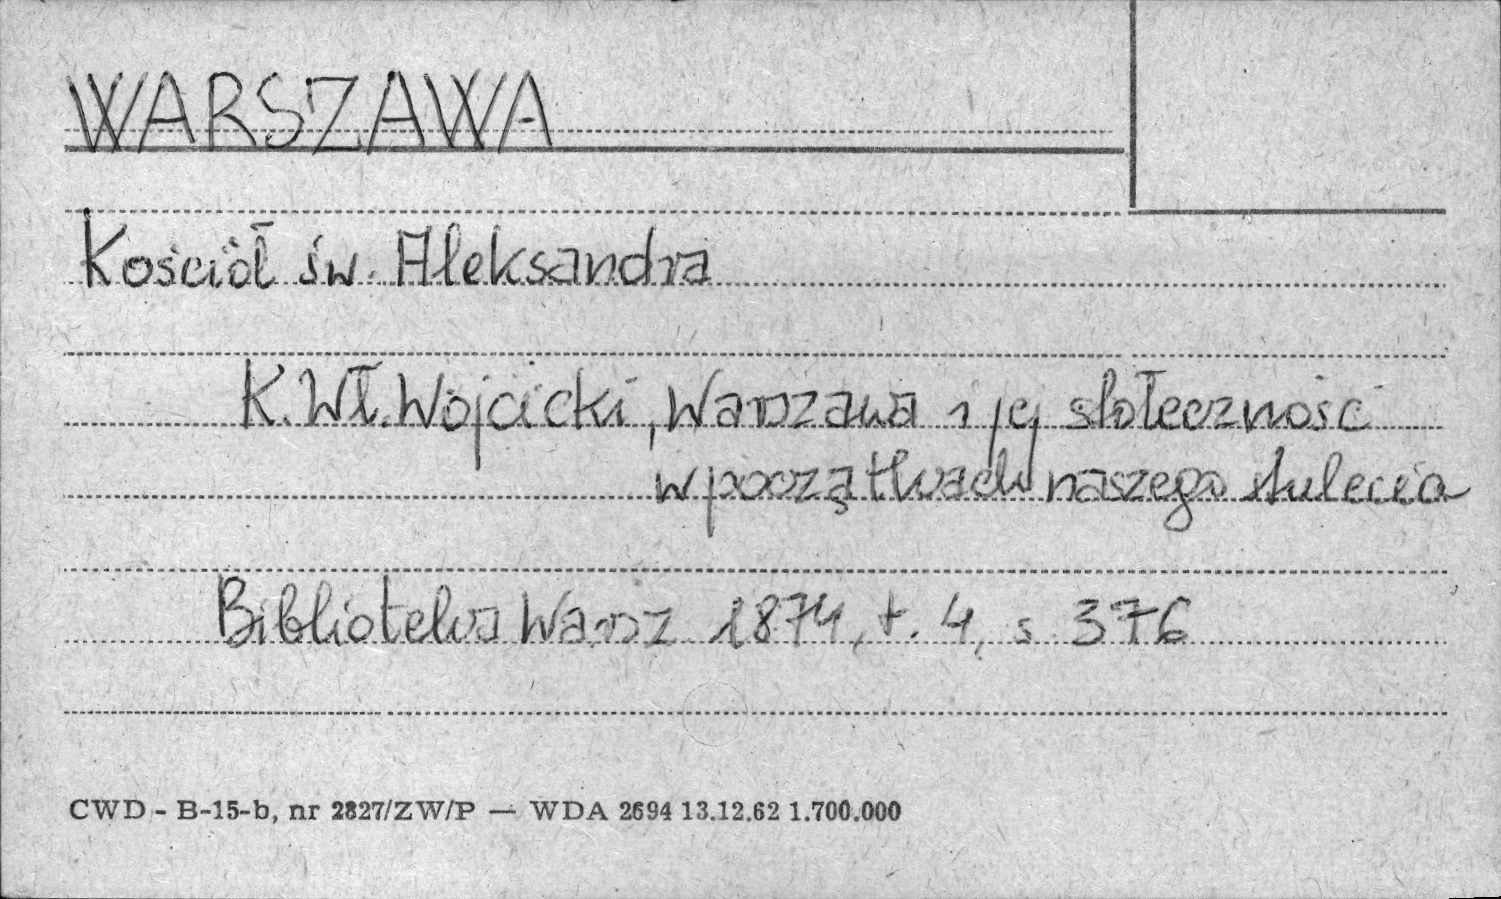 WARSZAWA
Kościół św. Aleksandra
K. Wł. Wójcicki, Warszawa i jej społeczność
w początkach naszego stulecia
Biblioteka Warsz. 1874, t. 4, s 376
CWD - B-15-b, nr 2827/ZW/P — WDA 2694 13.12.62 1.700.000